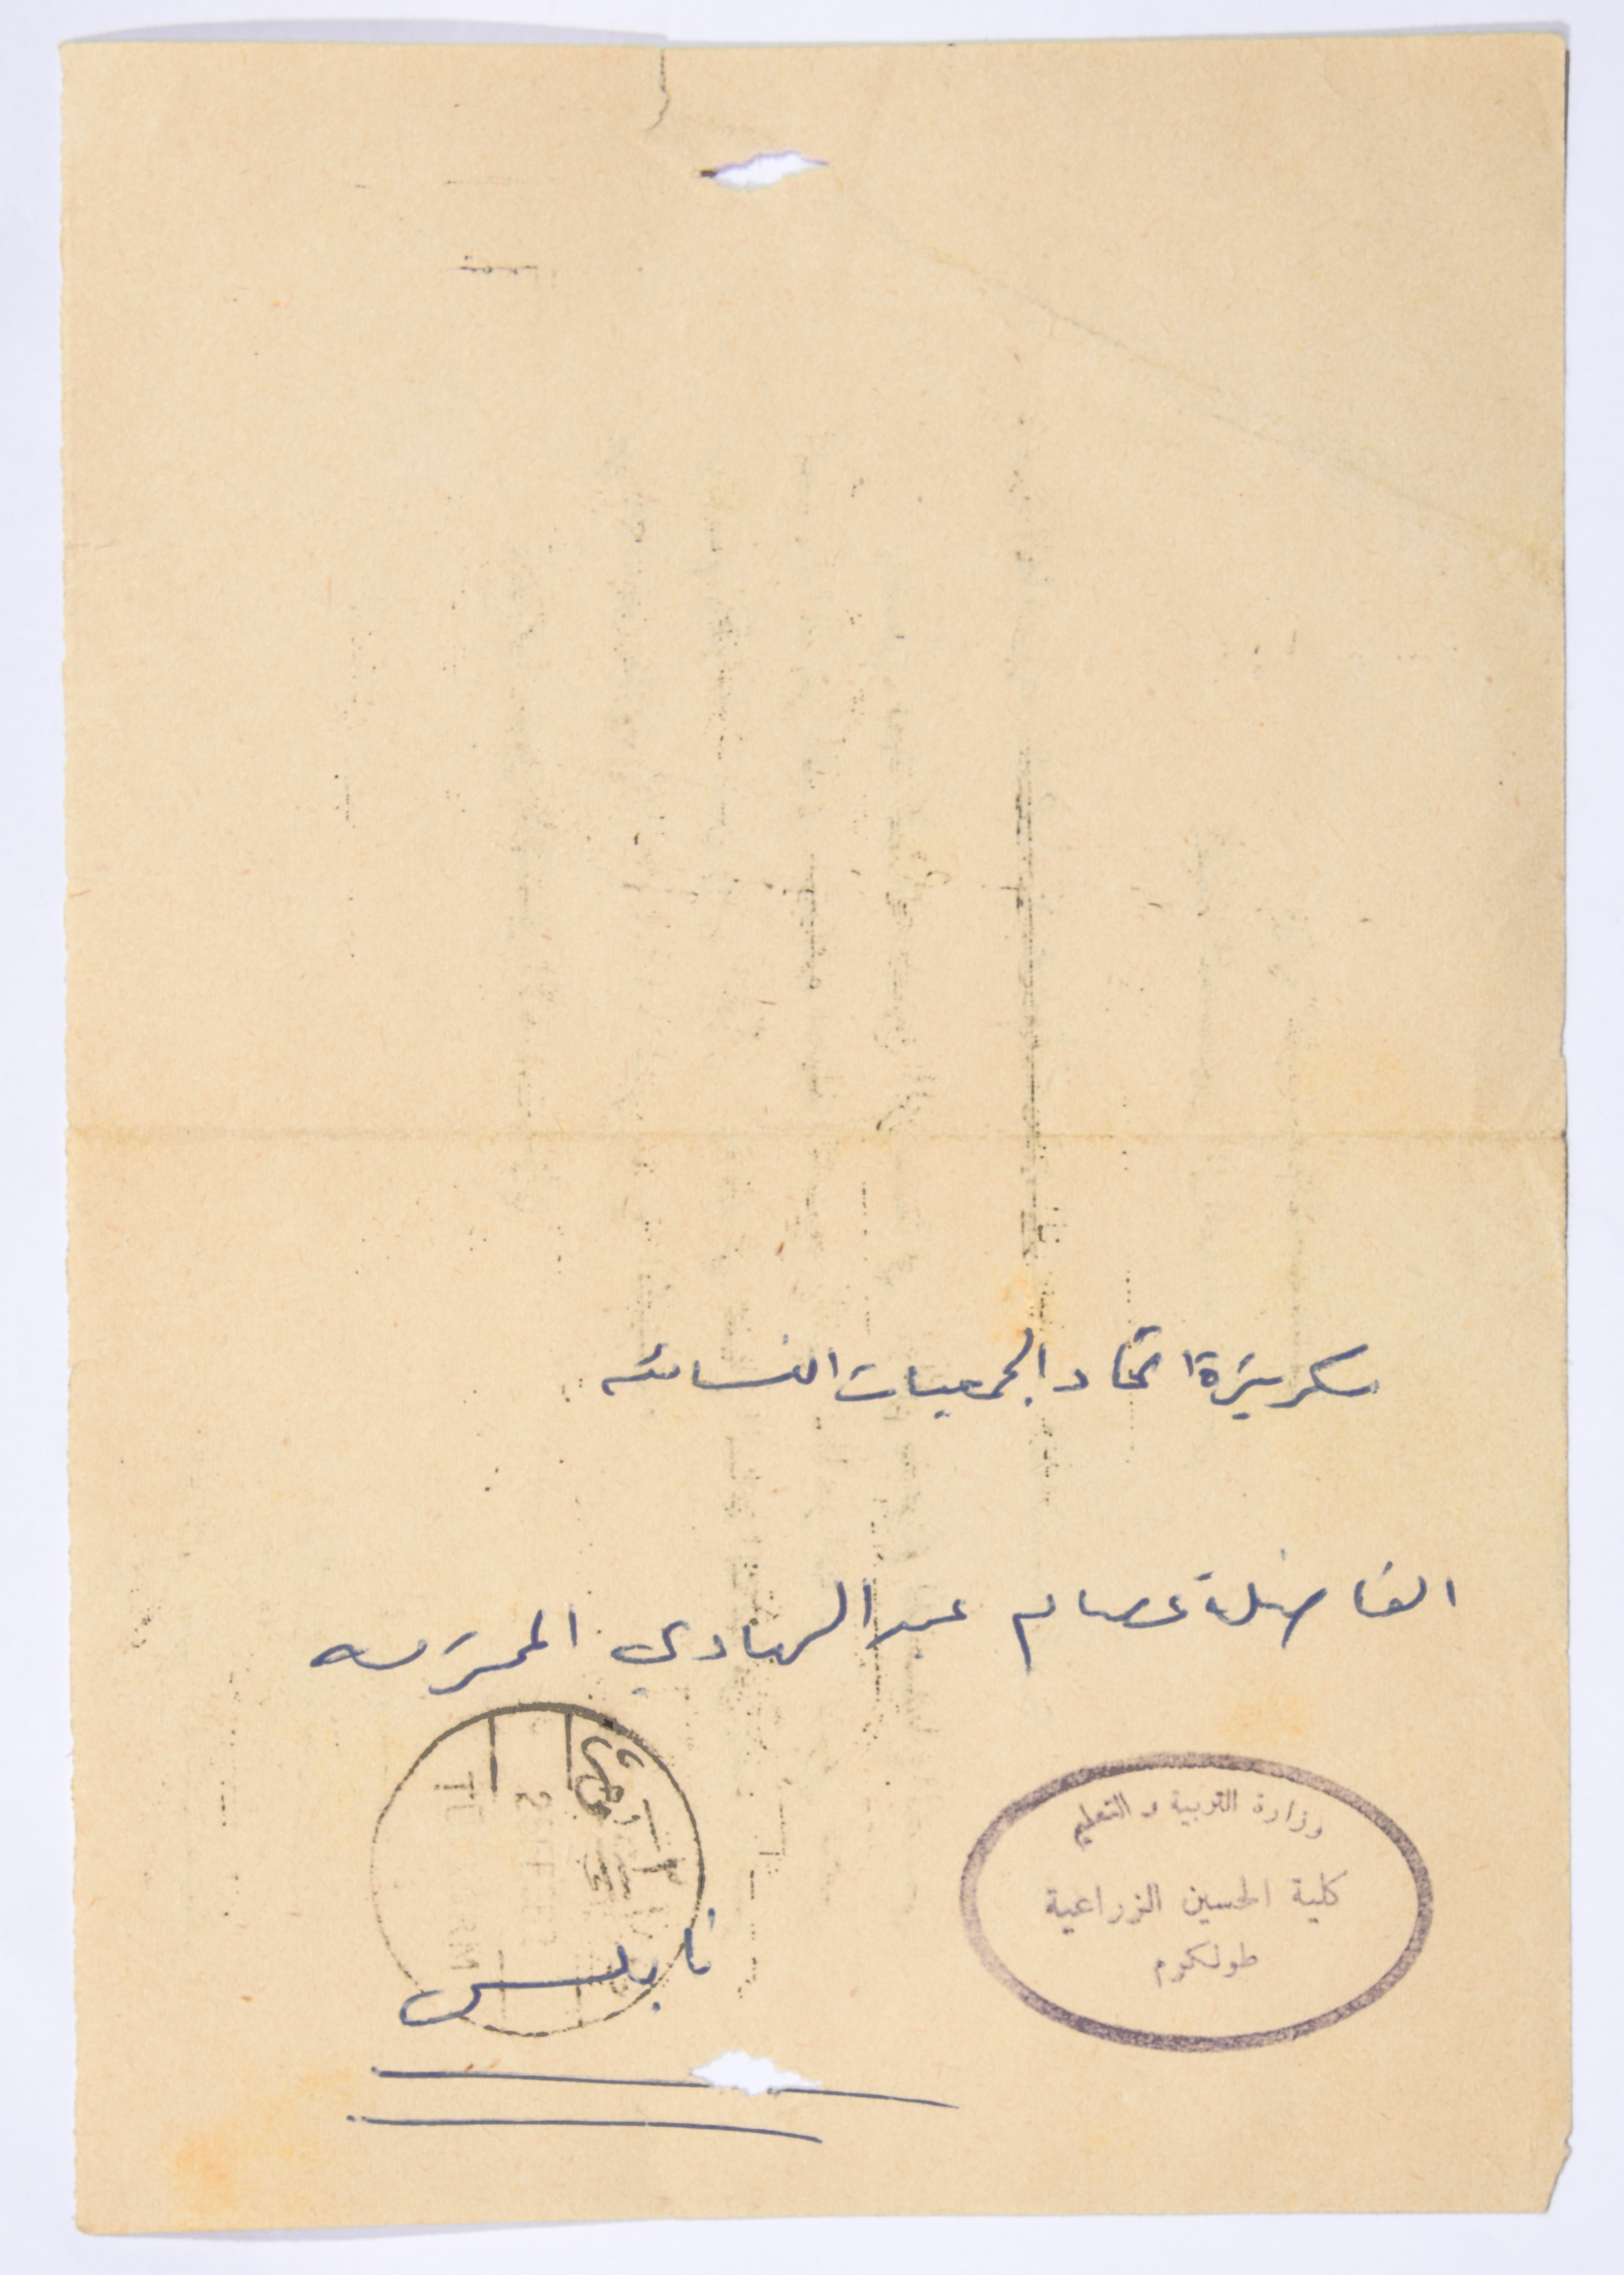 سكرتيرة اتحاد الجمعيات النسائيه
الفاضلة عصام عبد الهادي المحترمه
وزارة التربية والتعليم
كلية الحسين الزراعية
طولكرم
نابلس